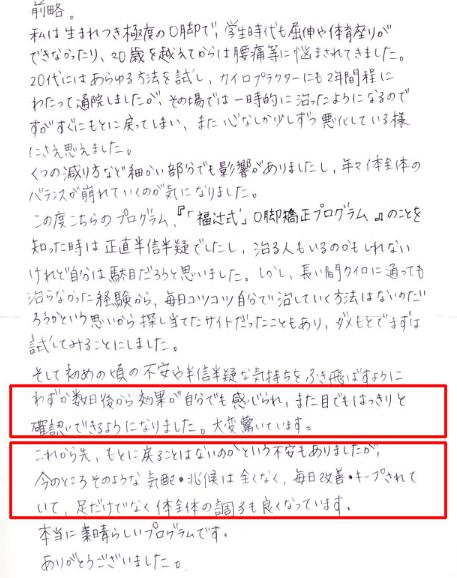 前略。
私は生まれつき極度のO脚で、学生時代も屈伸や体育座りが
できなかったり、20歳を越えてからは腰痛等に悩まされてきました。
20代にはあらゆる方法を試し、カイロプラクターにも2年間程に
わたって通院しましたが、その場では一時的に治ったようになるので
すがすぐにもとに戻ってしまい、また心なしか少しずつ悪化している様
にさえ思えました。
くつの減り方など細かい部分でも影響がありましたし、年々体全体の
バランスが崩れていくのが気になりました。
この度こちらのプログラム、『「福辻式」O脚矯正プログラム』のことを
知った時は正直半信半疑でしたし、治る人もいるのかもしれない
けれど自分は駄目だろうと思いました。しかし、長い間カイロに通っても
治らなかった経験から、毎日コツコツ自分で治していく方法はないのだ
ろうかという思いから探し当てたサイトだったこともあり、ダメもとでまずは
試してみることにしました。
そして初めの頃の不安や半信半疑な気持ちをふき飛ばすように
わずか数日後から効果が自分でも感じられ、また目でもはっきりと
確認できるようになりました。大変驚いています。
これから先、もとに戻ることはないのかという不安もありましたが、
今のところそのような気配・兆候は全くなく、毎日改善・キープされて
いて、足だけでなく体全体の調子も良くなっています。
本当に素晴らしいプログラムです。
ありがとうございました。